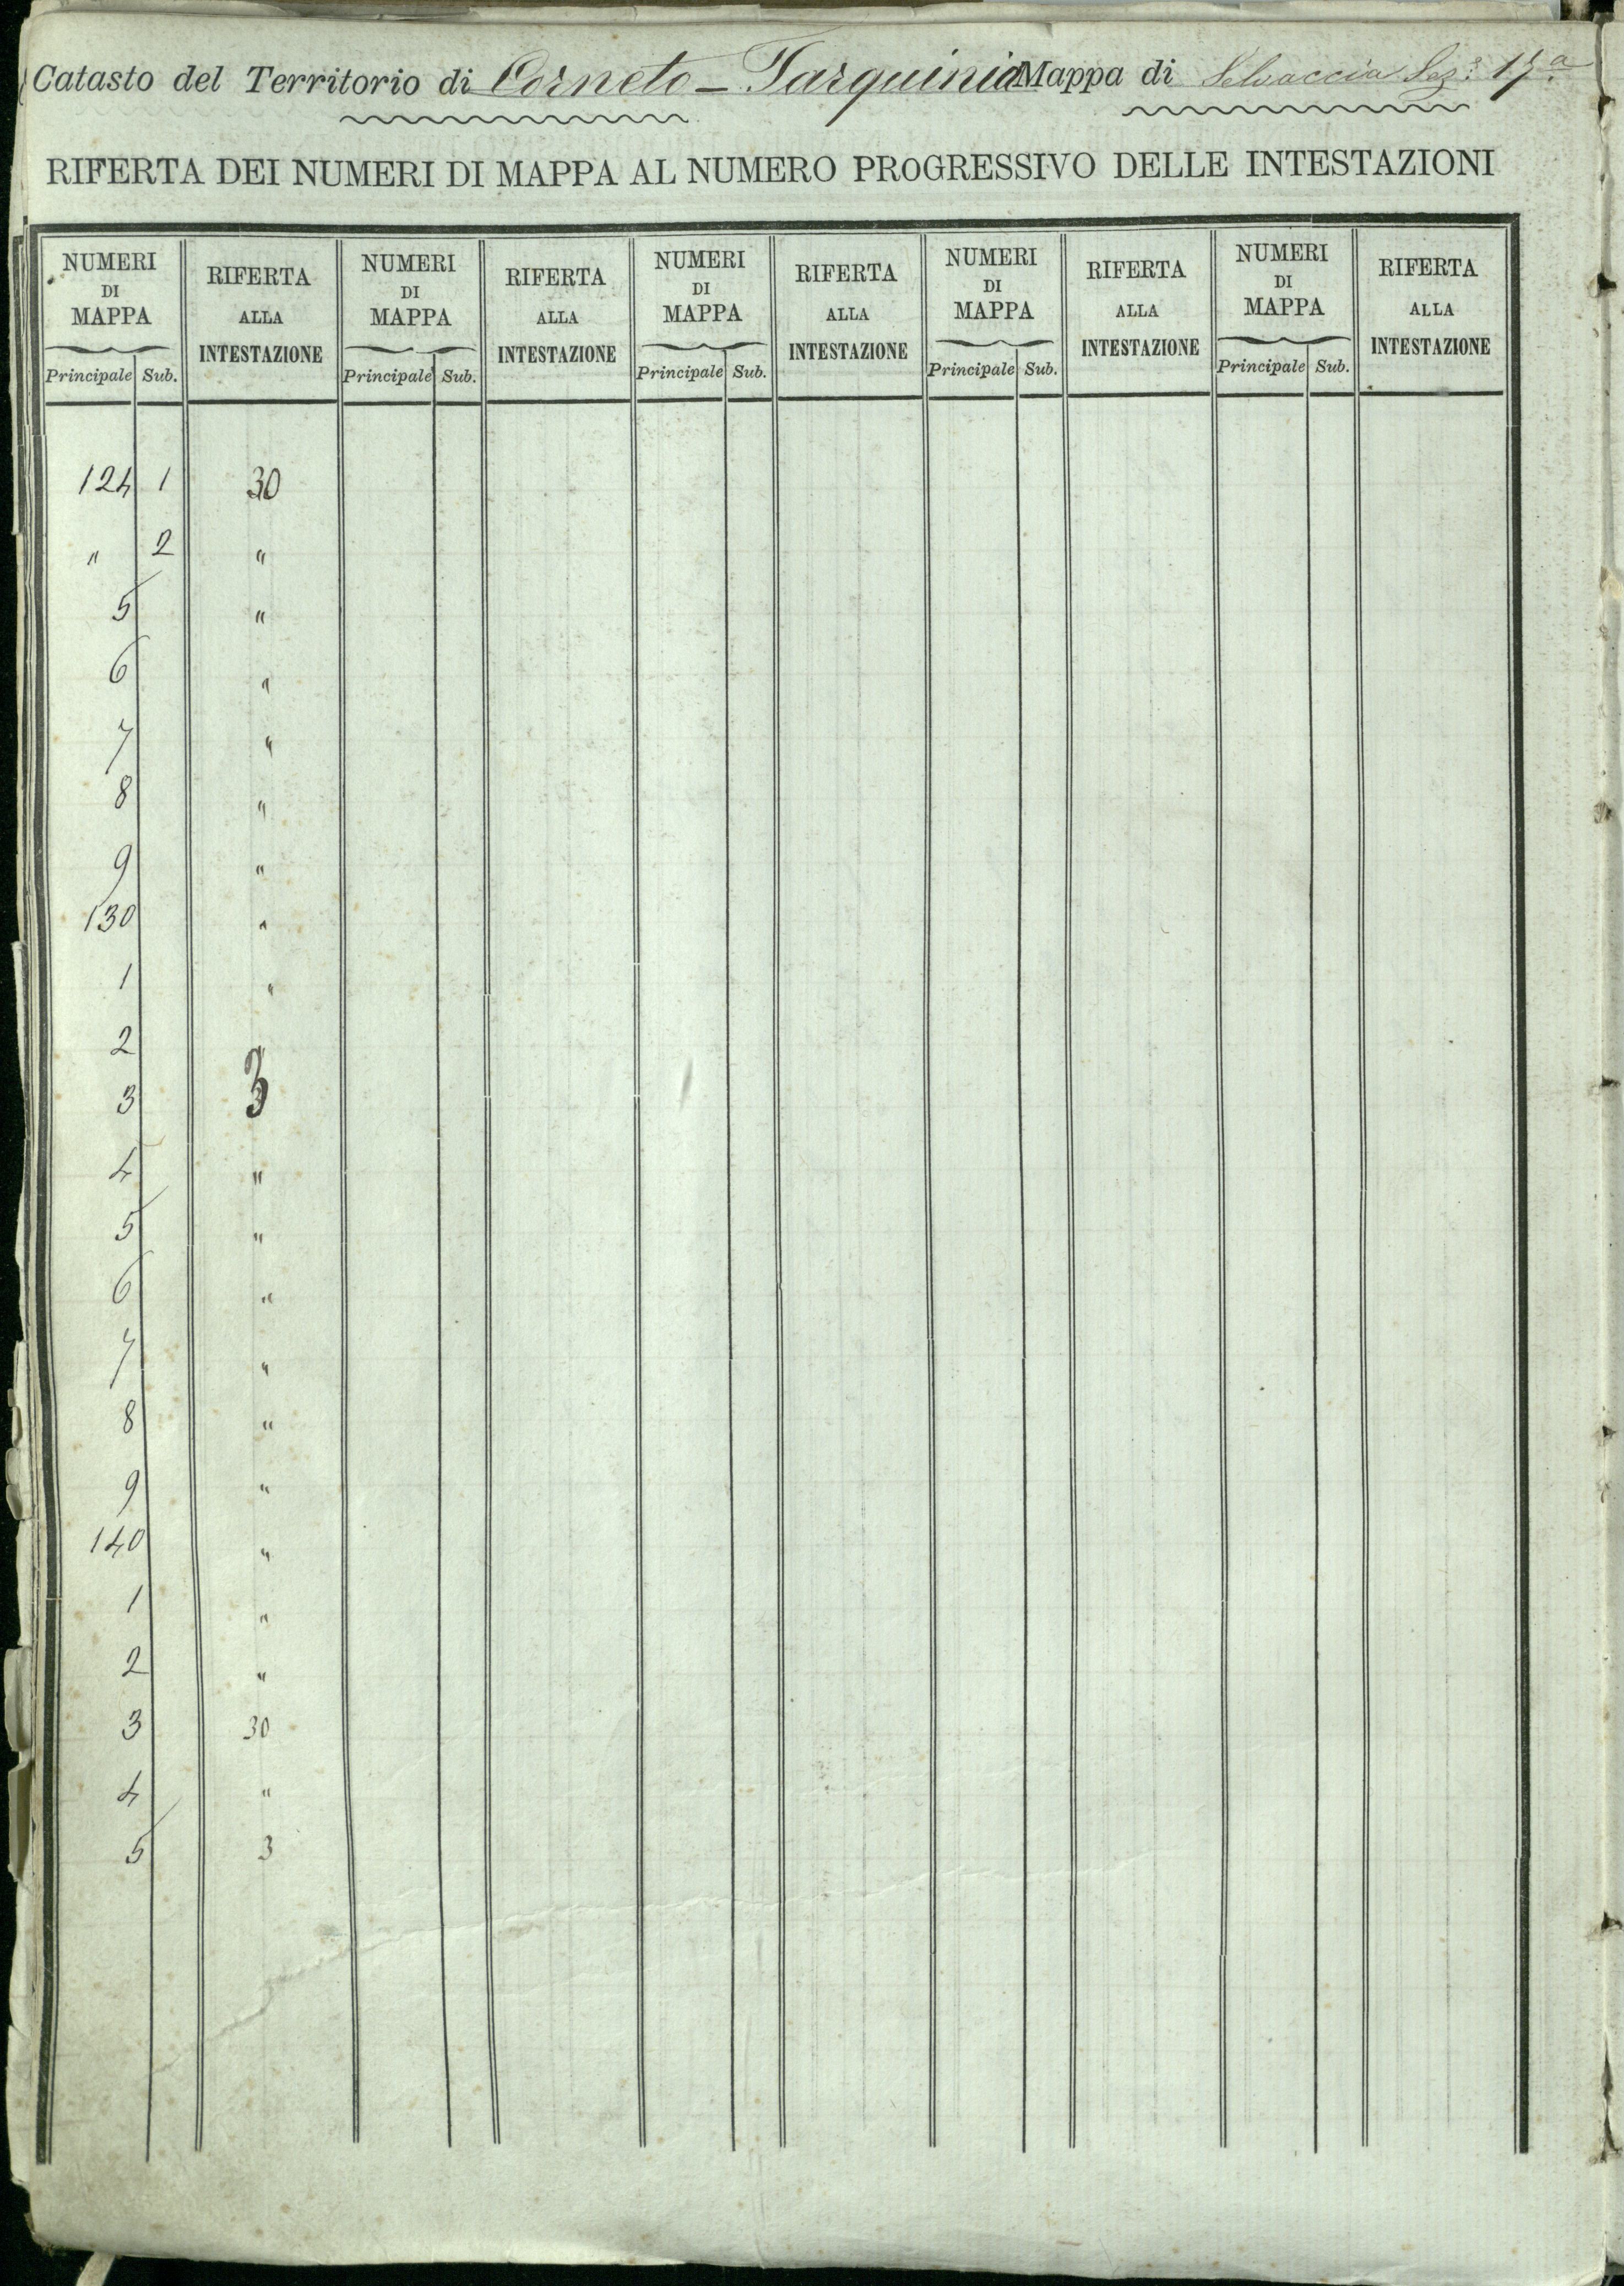 Catasto del Territorio di Corneto - Tarquinia Mappa di Selvaccia Sez.e 17.a
RIFERTA DEI NUMERI DI MAPPA AL NUMERO PROGRESSIVO DELLE INTESTAZIONI
NUMERI DI MAPPA Principale Sub. RIFERTA ALLA INTESTAZIONE NUMERI DI MAPPA Principale Sub. RIFERTA ALLA INTESTAZIONE NUMERI DI MAPPA Principale Sub. RIFERTA ALLA INTESTAZIONE NUMERI DI MAPPA Principale Sub. RIFERTA ALLA INTESTAZIONE NUMERI DI MAPPA Principale Sub. RIFERTA ALLA INTESTAZIONE
124 1 30
" 2 "
5 "
6 "
7 "
8 "
9 "
130 "
1 "
2 "
3 3
4 "
5 "
6 "
7 "
8 "
9 "
140 "
1 "
2 "
3 30
4 "
5 3